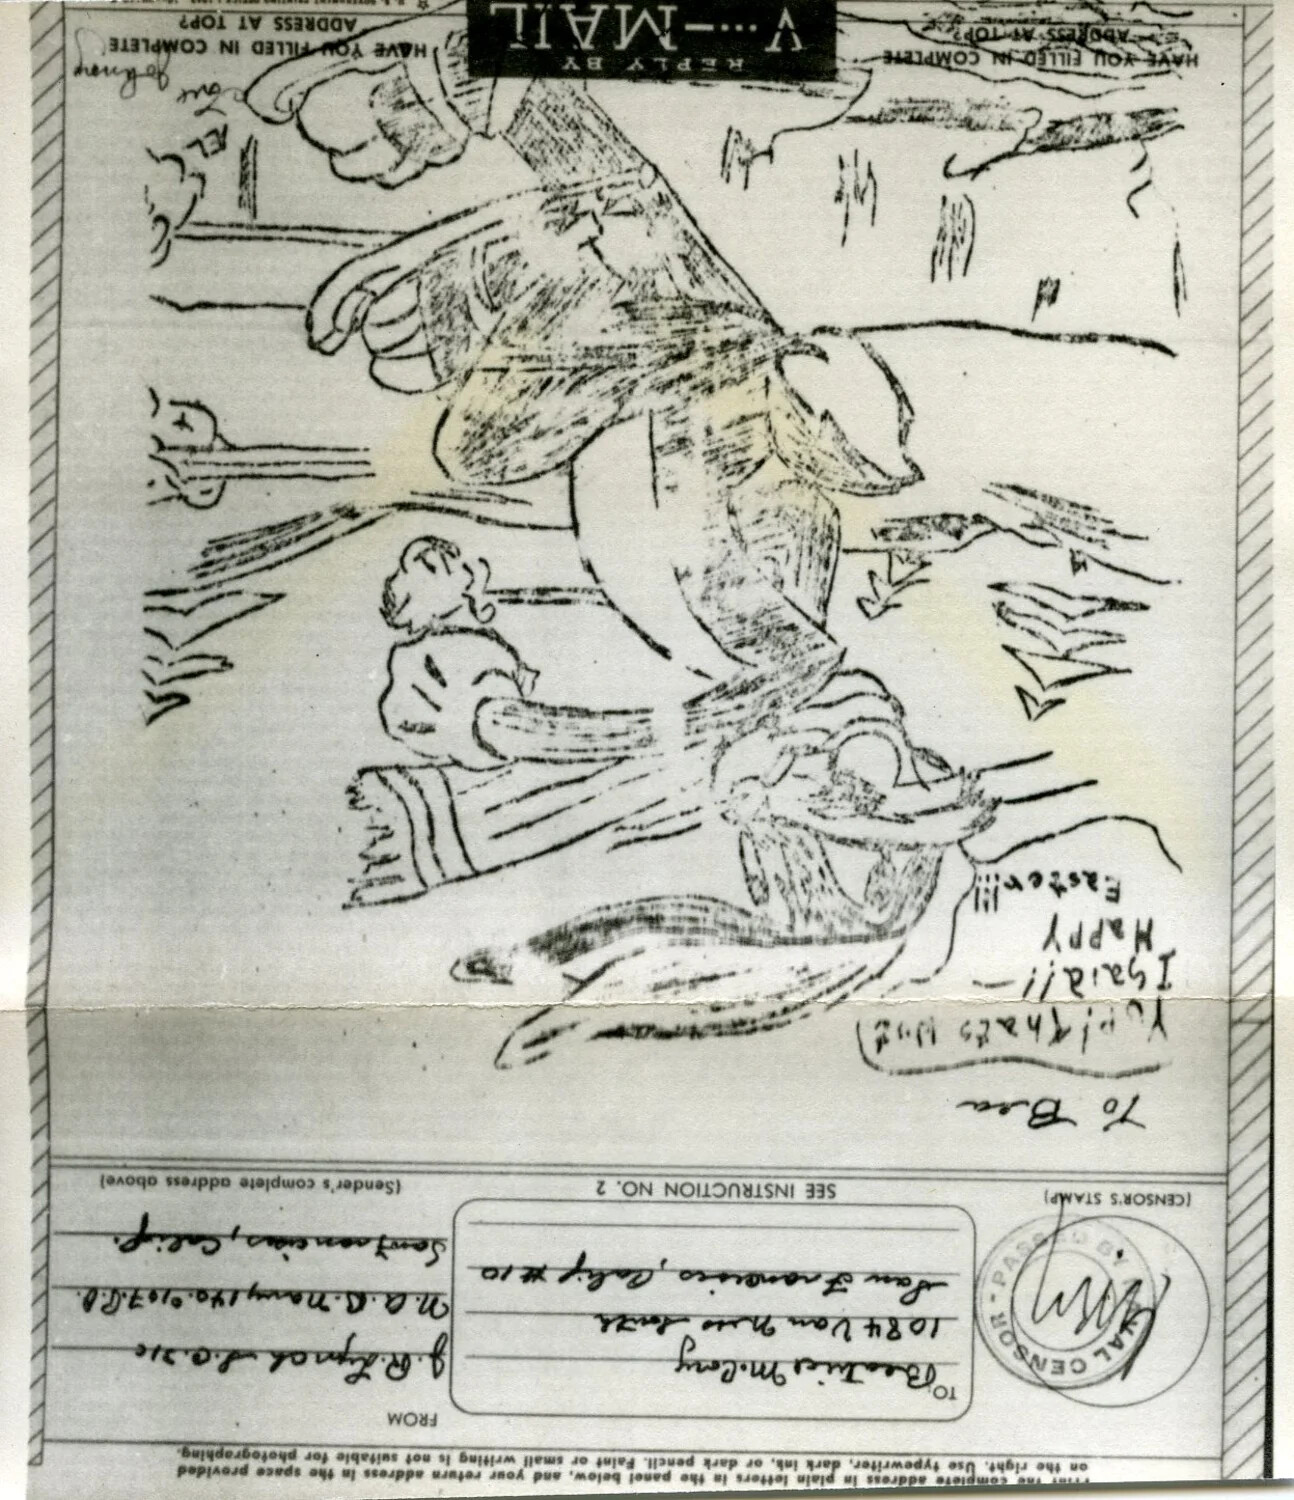 Print the complete address in plain letters in the panel below, and your return address in the space provided
on the right. Use typewriter, dark ink, or dark pencil. Faint or small writing is not suitable for photographing.
TO
Beatrice McCory
1084 Van Ness South
San Francisco, Calif #10
FROM
J. R. Lynch S.C. 3/c
N.A.B. Navy 140 %107 P.O.
San Francisco, Calif.
PASSED BY
NAVAL CENSOR
(CENSOR'S STAMP)
SEE INSTRUCTION NO. 2
(Sender's complete address above)
To Bea
Yup! Thats Wut
I Said!! —
Happy
Easter!!!
Love
Johnny
HAVE YOU FILLED IN COMPLETE
ADDRESS AT TOP?
REPLY BY
V···—MAIL
HAVE YOU FILLED IN COMPLETE
ADDRESS AT TOP?